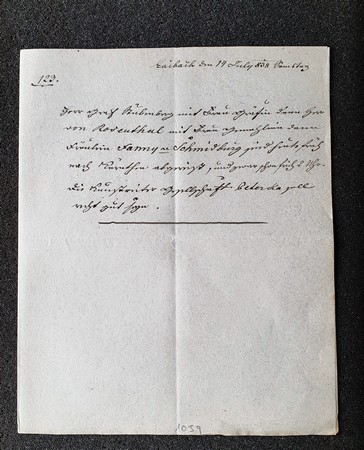 Laibach den 14 July 838 Samstag
123.
Herr Graf mit Frau Gräfin dann Herr
von Rosenthal mit Frau Gemahlin dann
Fräulein Fanny v Schmidburg sind heute früh
nach Kärnthen abgereist, und zwar
Die Kunstreiter Gesellschaft soll
recht gut seyn.
1039